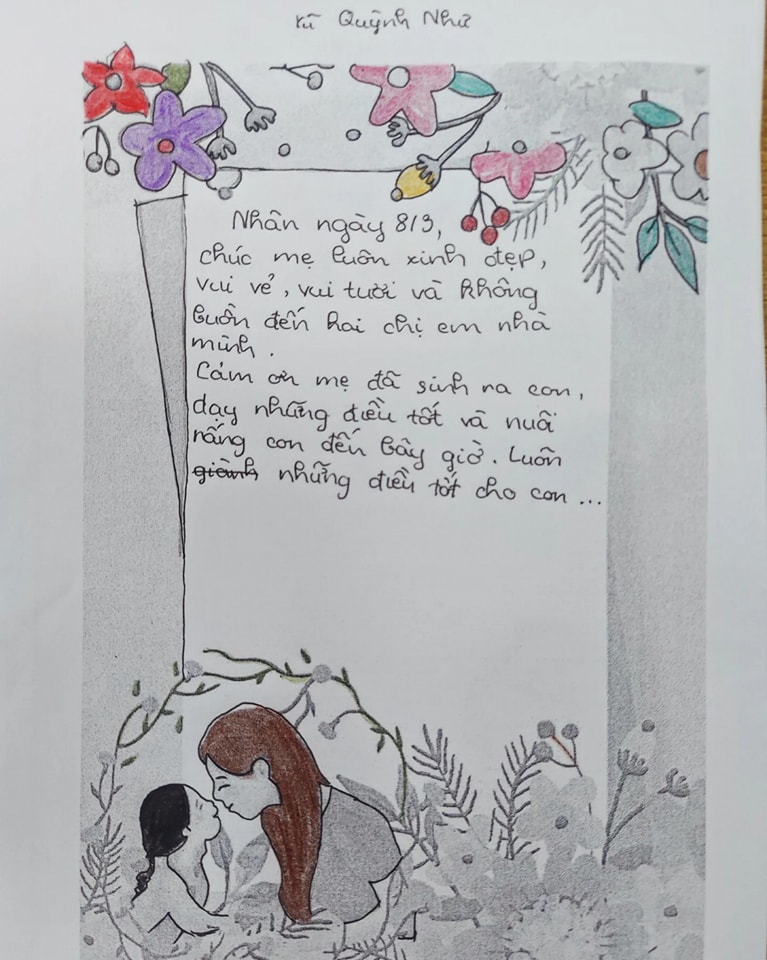 Kŭ Quỳnh Như
Nhân ngày 8/3,
chúc mẹ luôn xinh đẹp,
vui vẻ, vui tươi và không
buồn đến hai chị em nhà
mình.
Cảm ơn mẹ đã sinh ra con,
dạy những điều tốt và nuôi
nấng con đến bây giờ. Luôn
giành những điều tốt cho con ...